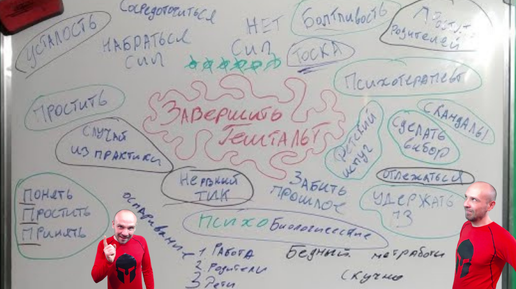 УСТАЛОСТЬ
СОСРЕДОТОЧИТЬСЯ
НАБРАТЬСЯ
СИЛ
НЕТ
СИЛ
БОЛТЛИВОСТЬ
РОДИТЕЛЕЙ
ТОСКА
ПСИХОТЕРАПЕВТ
ПРОСТИТЬ
ЗАВЕРШИТЬ
ГЕШТАЛЬТ
СКАНДАЛЫ
СДЕЛАТЬ
ВЫБОР
СЛУЧАЙ
ИЗ ПРАКТИКИ
ДЕТСКИЙ
ИСПУГ
НЕРВНЫЙ
ТИК
ЗАБЫТЬ
ПРОШЛОЕ
ОТЛЕЖАТЬСЯ
УДЕРЖАТЬ
ПОНЯТЬ
ПРОСТИТЬ
ПРИНЯТЬ
ПСИХОБиологические
1 РАБОТА
2 РОДИТЕЛИ
3 ДЕТИ
БЕДНЫЙ
НЕТ РАБОТЫ
СКУЧНО